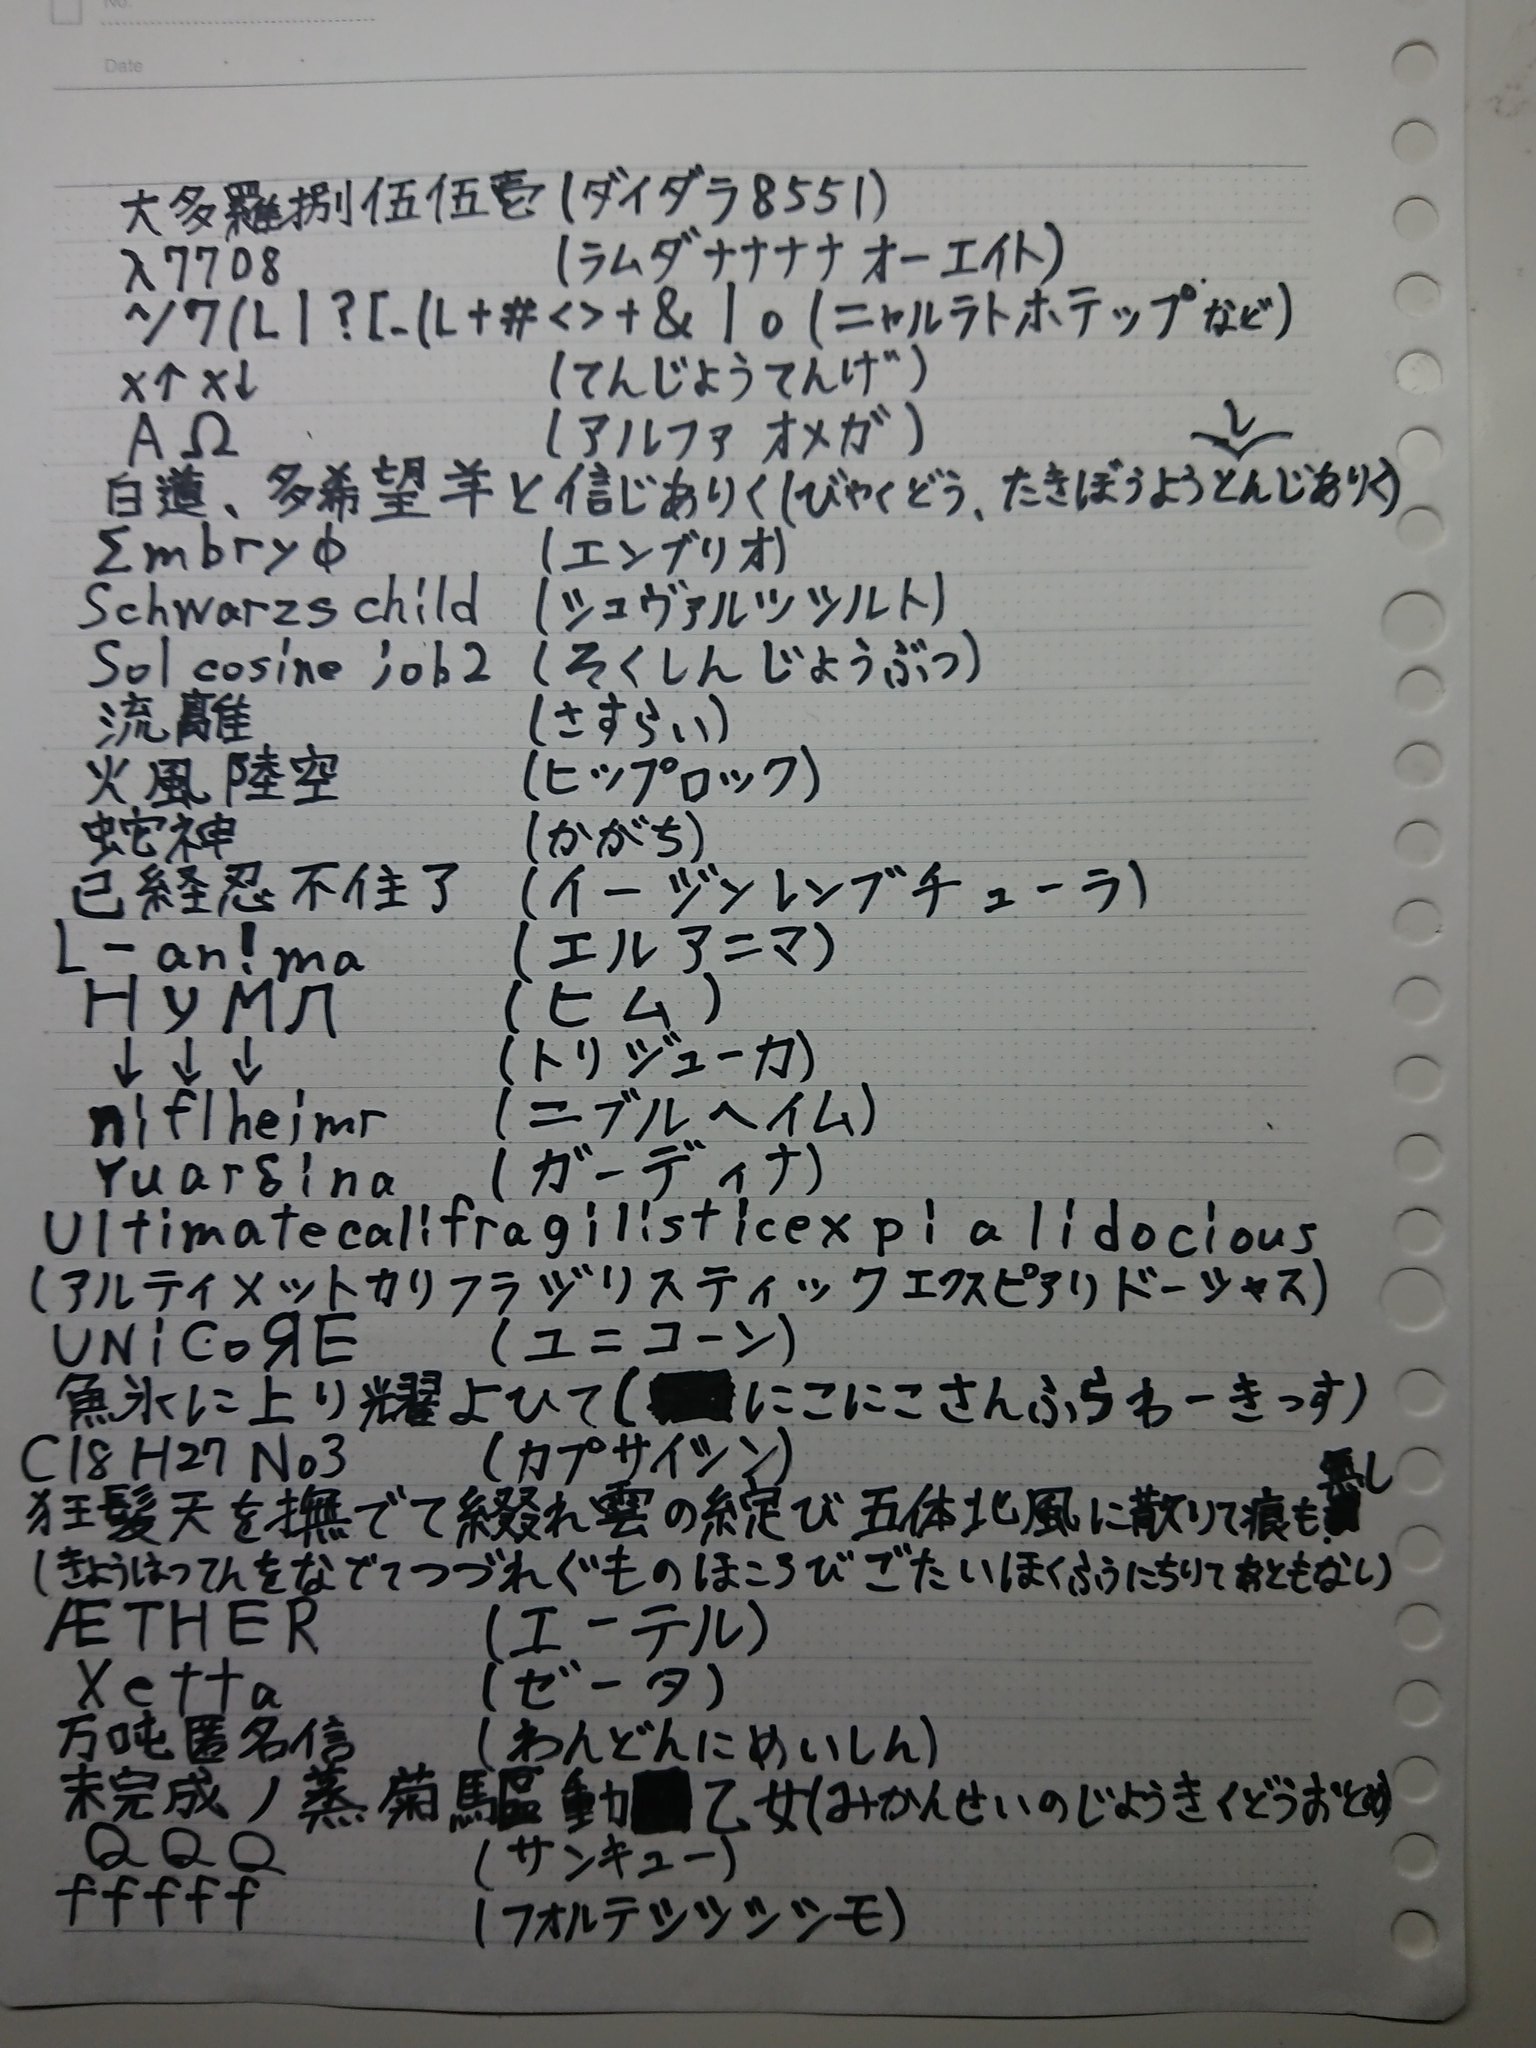 No.
Date
大多羅捌伍伍壱(ダイダラ8551)
λ7708 (ラムダナナナナオーエイト)
~ソワ(L|?[_(L+#<>+&|o(ニャルラトホテップなど)
x↑x↓ (てんじょうてんげ)
AΩ (アルファオメガ)
し
白道、多希望羊と信じありく(びゃくどう、たきぼうようとんじありく)
Σmbryφ (エンブリオ)
Schwarzschild (シュヴァルツシルト)
Sol cosine job2 (そくしんじょうぶつ)
流離 (さすらい)
火風陸空 (ヒップロック)
蛇神 (かがち)
已経忍不住了 (イージンレンブチューラ)
L-an!ma (エルアニマ)
HyMЛ (ヒム)
↓↓↓ (トリジューカ)
niflheimr (ニブルヘイム)
Yuarδina (ガーディナ)
Ultimatecalifragilisticexpialidocious
(アルティメットカリフラヂリスティックエクスピアリドーシャス)
UNiCoЯE (ユニコーン)
魚氷に上り耀よひて(にこにこさんふらわーきっす)
C18H27No3 (カプサイシン)
狂髪天を撫でて綴れ雲の綻び五体北風に散りて痕も無し
(きょうはってんをなでてつづれぐものほころびごたいほくふうにちりておともなし)
ÆTHER (エーテル)
Xetta (ゼータ)
万吨匿名信 (わんどんにめいしん)
未完成ノ蒸菊驅動乙女(みかんせいのじょうきくどうおとめ)
QQQ (サンキュー)
fffff (フォルテシッシシモ)